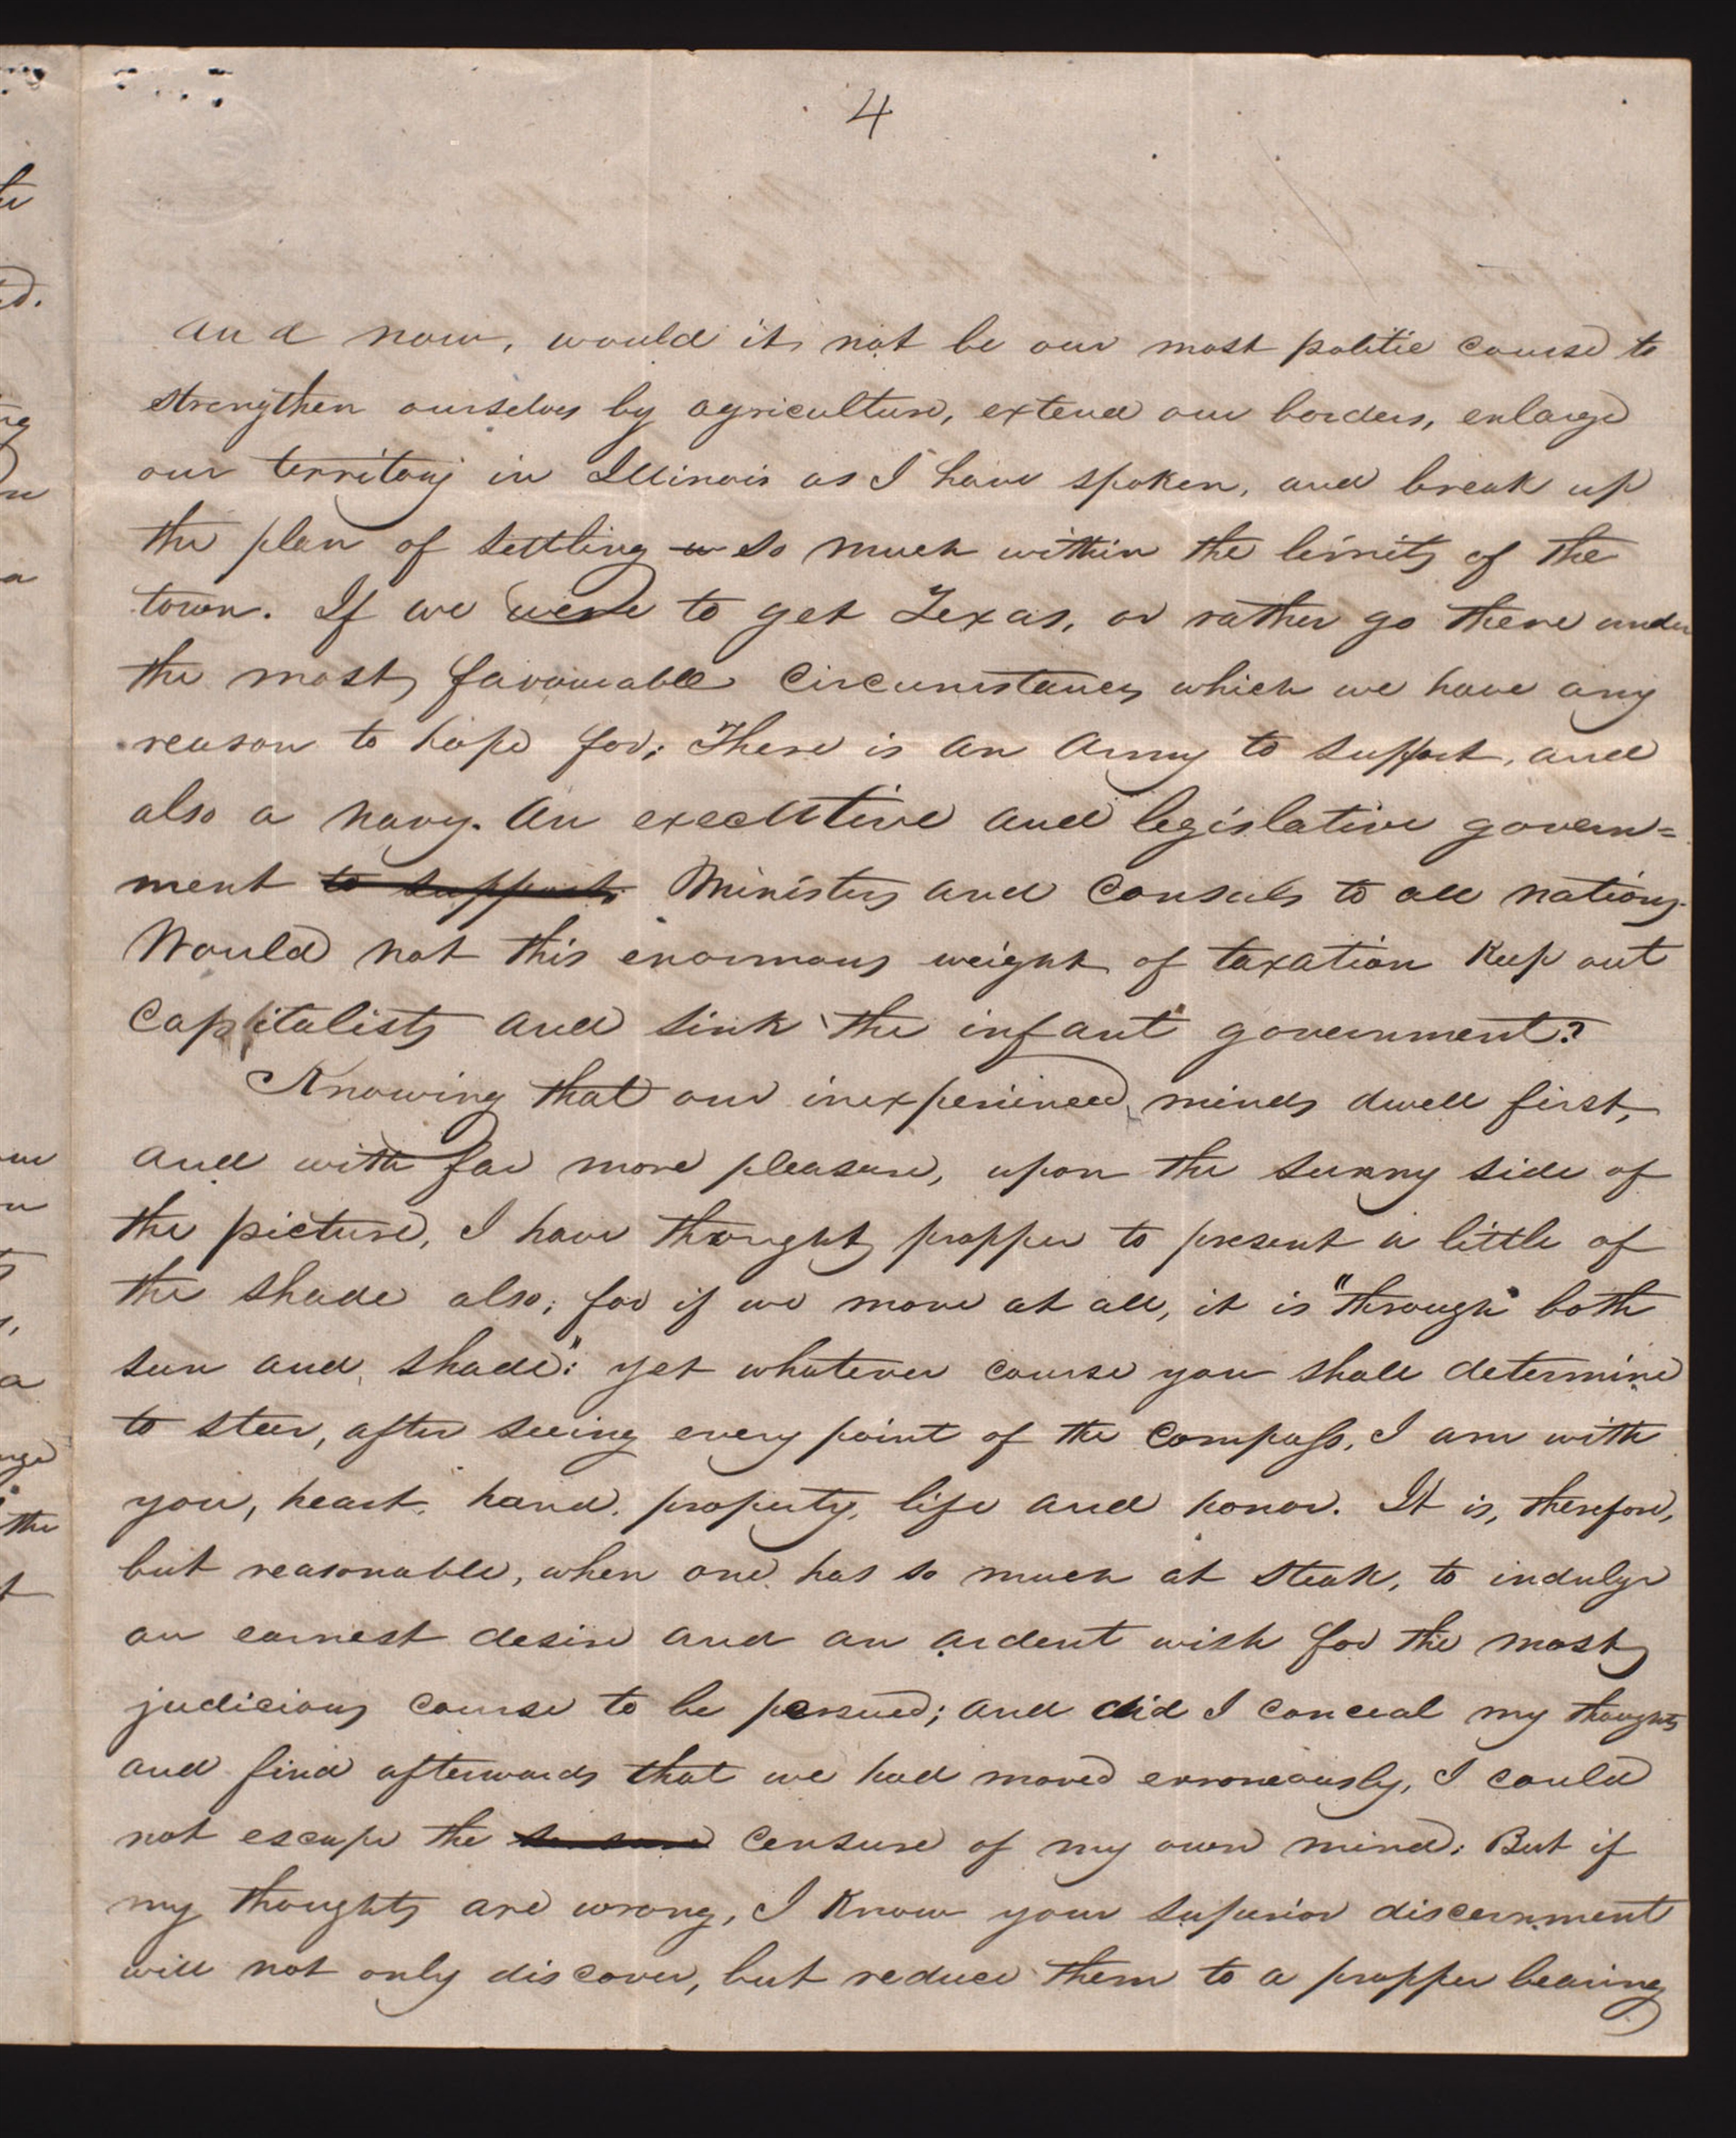 4
and now, would it not be our most politic course to
strengthen ourselves by agriculture, extend our borders, enlarge
our territory in Illinois as I have spoken, and break up
the plan of settling so much within the limits of the
town. If we were to get Texas, or rather go there under
the most favourable circumstances which we have any
reason to hope for; There is an Army to support, and
also a navy. An executive and legislative govern=
ment to support. Ministers and Consuls to all nations.
Would not this enormous weight of taxation keep out
Capitalists and sink the infant government?
Knowing that our inexperienced minds dwell first,
and with far more pleasure, upon the sunny side of
the picture, I have thought propper to present a little of
the shade also; for if we move at all, it is "through both
sun and shade": yet whatever course you shall determine
to steer, after seeing every point of the compass, I am with
you, heart, hand, property, life and honor. It is, therefore,
but reasonable, when one has so much at steak, to indulge
an earnest desire and an ardent wish for the most
judicious course to be persued; and did I conceal my thoughts
and find afterwards that we had moved erroneously, I could
not escape the censure of my own mind: But if
my thoughts are wrong, I know your superior discernment
will not only discover, but reduce them to a propper bearing